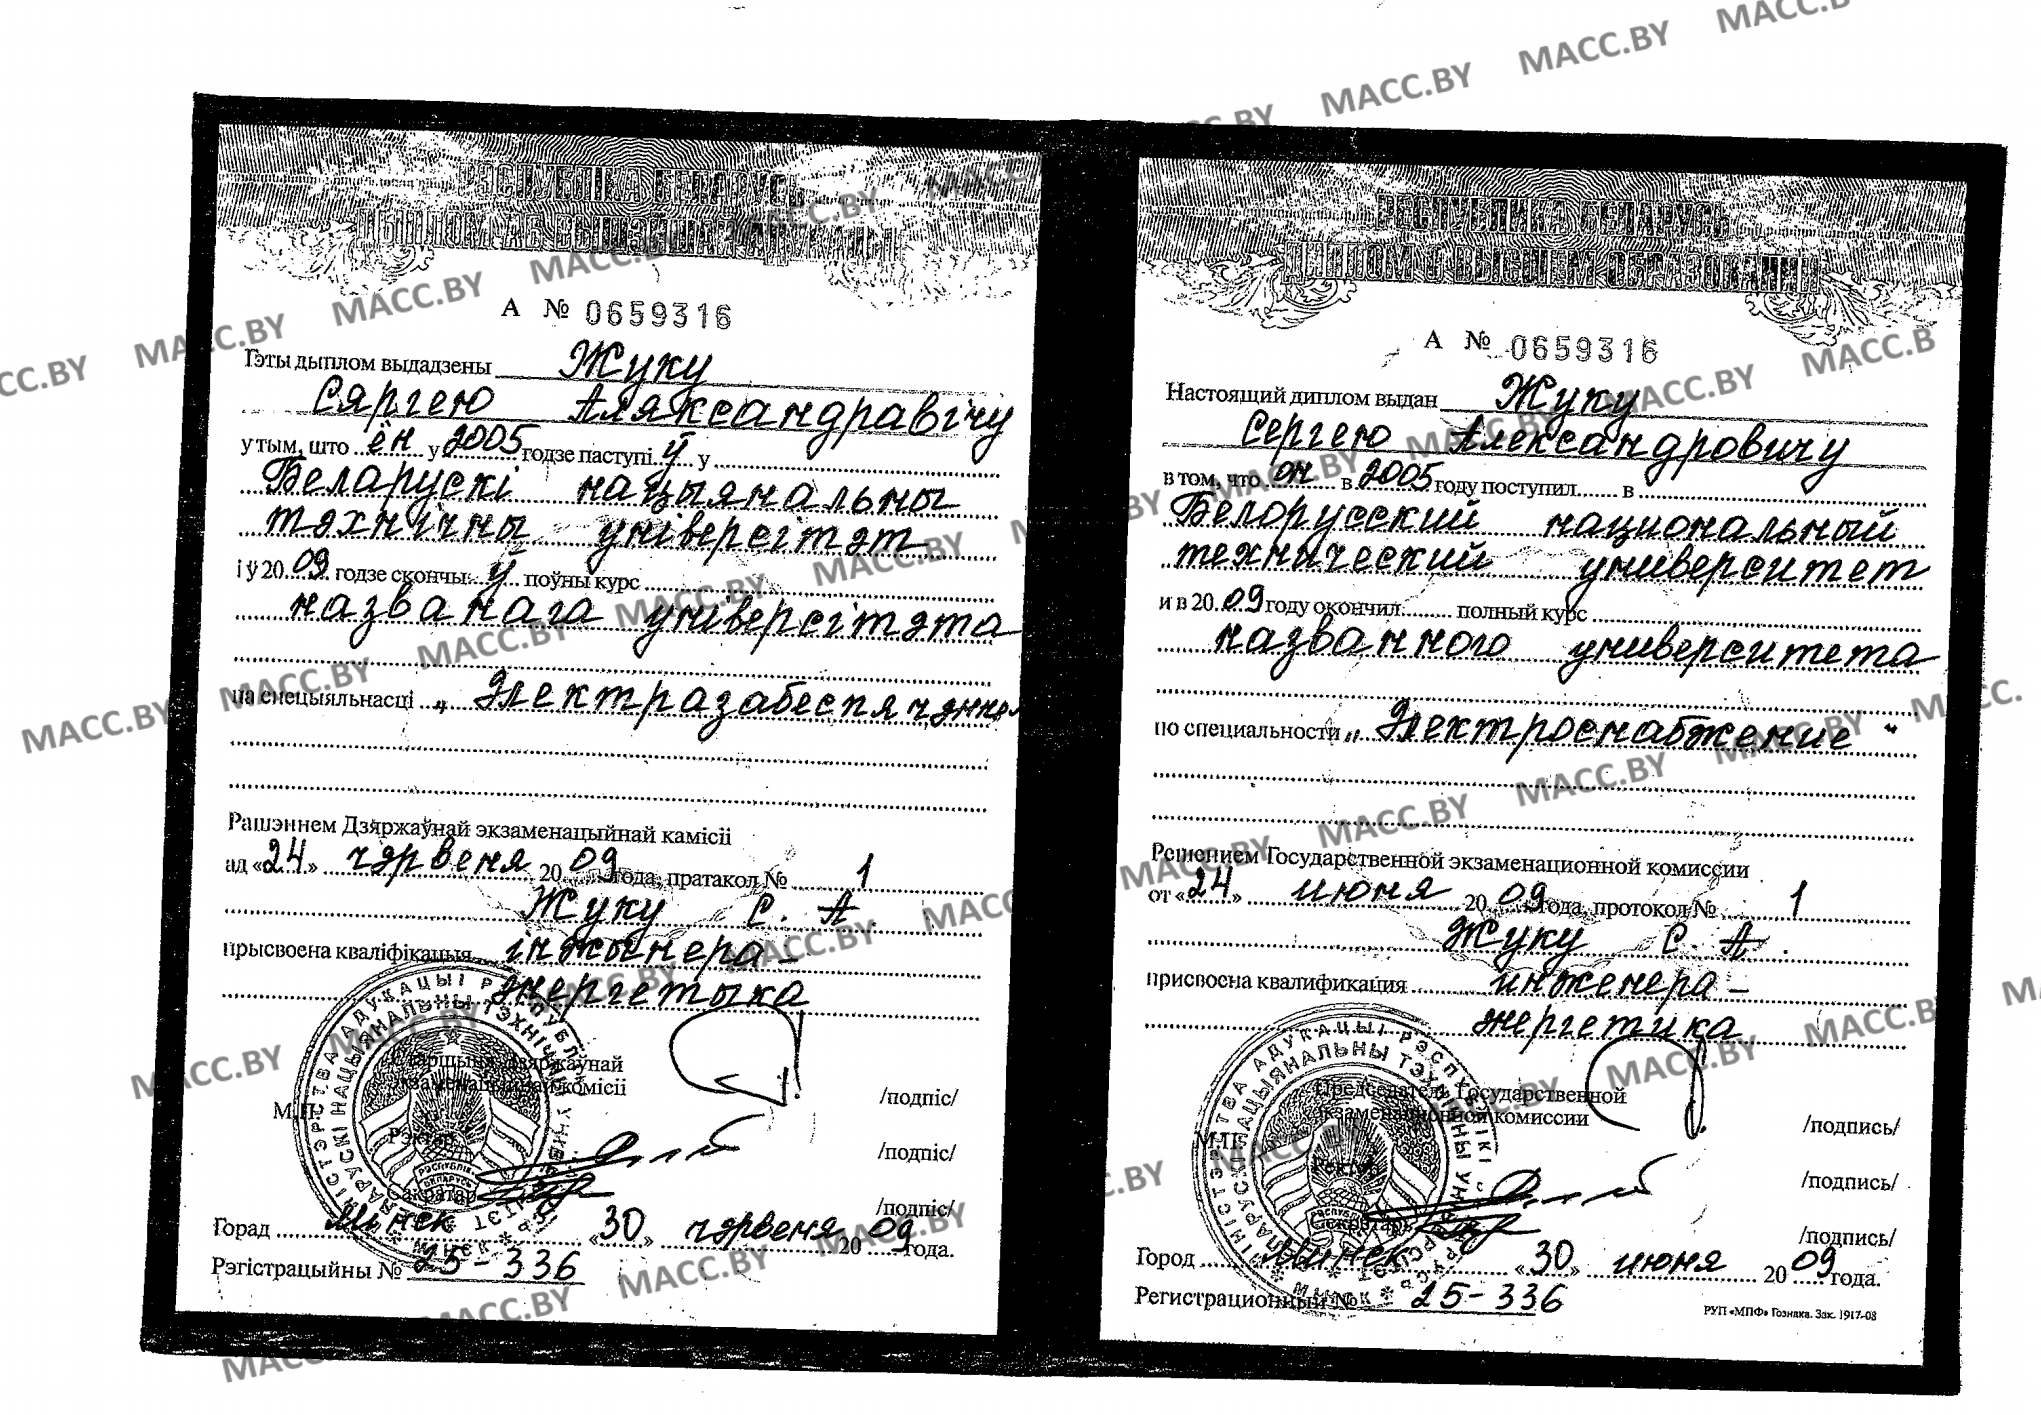 РЭСПУБЛІКА БЕЛАРУСЬ
ДЫПЛОМ АБ ВЫШЭЙШАЙ АДУКАЦЫІ
А № 0659316
Гэты дыплом выдадзены Жуку
Сяргею Аляксандравічу
у тым, што ён у 2005 годзе паступі ў у
Беларускі нацыянальны
тэхнічны універсітэт
і ў 20 09 годзе скончы ў поўны курс
названага універсітэта
па спецыяльнасці „ Электразабеспячэнне
Рашэннем Дзяржаўнай экзаменацыйнай камісіі
ад «24» чэрвеня 20 09 года, пратакол № 1
Жуку С. А.
прысвоена кваліфікацыя інжынера-
энергетыка
Старшыня Дзяржаўнай
экзаменацыйнай комісіі /подпіс/
М.П.
Рэктар /подпіс/
Сакратар /подпіс/
Горад Минск «30» чэрвеня 20 09 года.
Рэгістрацыйны № 25-336
МІНІСТЭРСТВА АДУКАЦЫІ РЭСПУБЛІКІ БЕЛАРУСЬ * МІНСК *
БЕЛАРУСКІ НАЦЫЯНАЛЬНЫ ТЭХНІЧНЫ УНІВЕРСІТЭТ
РЭСПУБЛІКА БЕЛАРУСЬ
РЕСПУБЛИКА БЕЛАРУСЬ
ДИПЛОМ О ВЫСШЕМ ОБРАЗОВАНИИ
А № 0659316
Настоящий диплом выдан Жуку
Сергею Александровичу
в том, что он в 2005 году поступил в
Белорусский национальный
технический университет
и в 20 09 году окончил полный курс
названного университета
по специальности „ Электроснабжение "
Решением Государственной экзаменационной комиссии
от «24» июня 20 09 года, протокол № 1
Жуку С. А.
присвоена квалификация инженера-
энергетика
Председатель Государственной
экзаменационной комиссии /подпись/
М.П.
Ректор /подпись/
Секретарь /подпись/
Город Минск «30» июня 20 09 года.
Регистрационный № 25-336
РУП «МПФ» Гознака. Зак. 1917-08
МІНІСТЭРСТВА АДУКАЦЫІ РЭСПУБЛІКІ БЕЛАРУСЬ * МІНСК *
БЕЛАРУСКІ НАЦЫЯНАЛЬНЫ ТЭХНІЧНЫ УНІВЕРСІТЭТ
MACC.BY